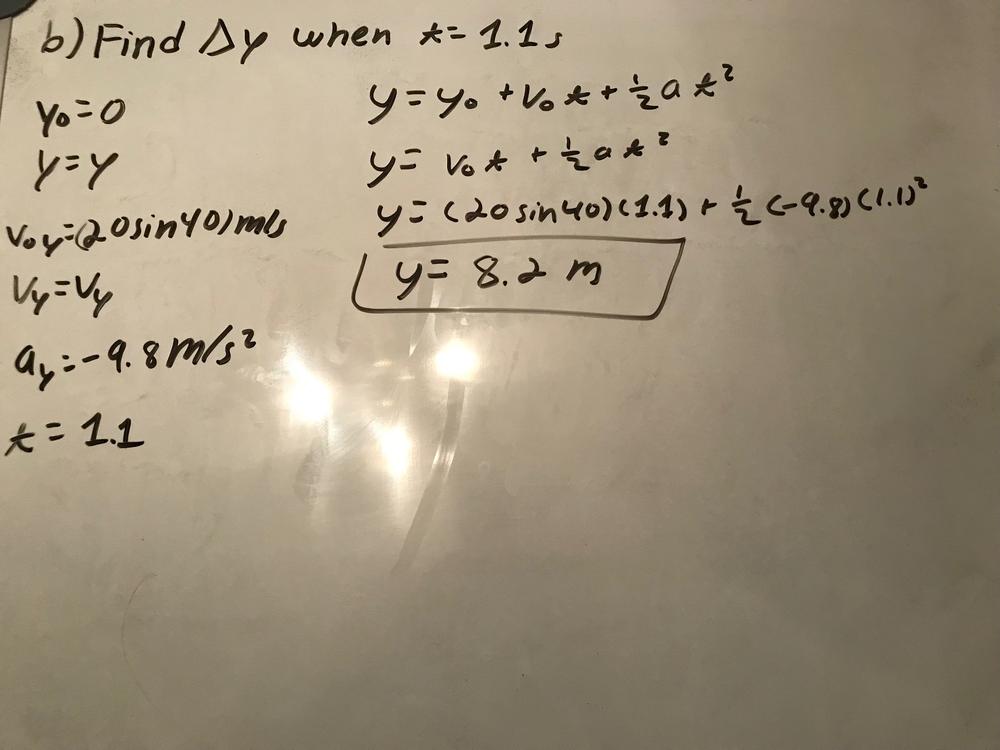 b) Find Δy when t = 1.1 s
y₀ = 0
y = y
v₀y = (20 sin 40) m/s
Vy = Vy
ay = -9.8 m/s²
t = 1.1
y = y₀ + v₀ t + ½ a t²
y = v₀ t + ½ a t²
y = (20 sin 40)(1.1) + ½ (-9.8)(1.1)²
y = 8.2 m